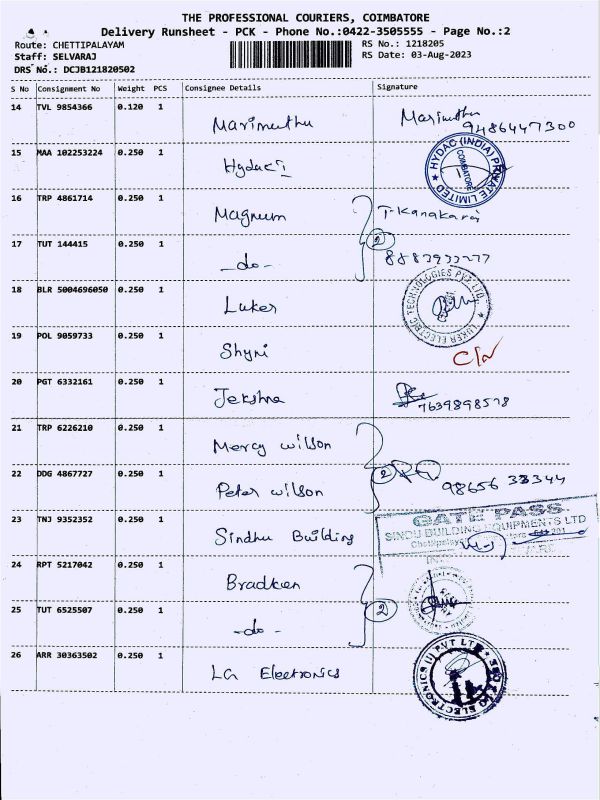 THE PROFESSIONAL COURIERS, COIMBATORE
Delivery Runsheet - PCK - Phone No.:0422-3505555 - Page No.:2
Route: CHETTIPALAYAM
RS No.: 1218205
Staff: SELVARAJ
RS Date: 03-Aug-2023
DRS No.: DCJB121820502
S No Consignment No Weight PCS Consignee Details Signature
14 TVL 9854366 0.120 1 Marimuthu Marimuthu
9486447300
15 MAA 102253224 0.250 1 Hydac
HYDAC (INDIA) PRIVATE LIMITED ★ COIMBATORE
16 TRP 4861714 0.250 1 Magnum T. Kanakaraj
17 TUT 144415 0.250 1 -do- 2
18 BLR 5004696050 0.250 1 Luker
LUKER ELECTRIC TECHNOLOGIES PVT. LTD. ★
19 POL 9059733 0.250 1 Shyni
20 PGT 6332161 0.250 1 Jekshna
7639898578
21 TRP 6226210 0.250 1 Mercy Wilson
22 DDG 4867727 0.250 1 Peter Wilson 2
98656 33344
23 TNJ 9352352 0.250 1 Sindhu Building
GATE PASS
SINDU BUILDING EQUIPMENTS LTD
24 RPT 5217042 0.250 1 Bradken
25 TUT 6525507 0.250 1 -do- 2
26 ARR 30363502 0.250 1 LG Electronics
ELECTRONICS (I) PVT LTD